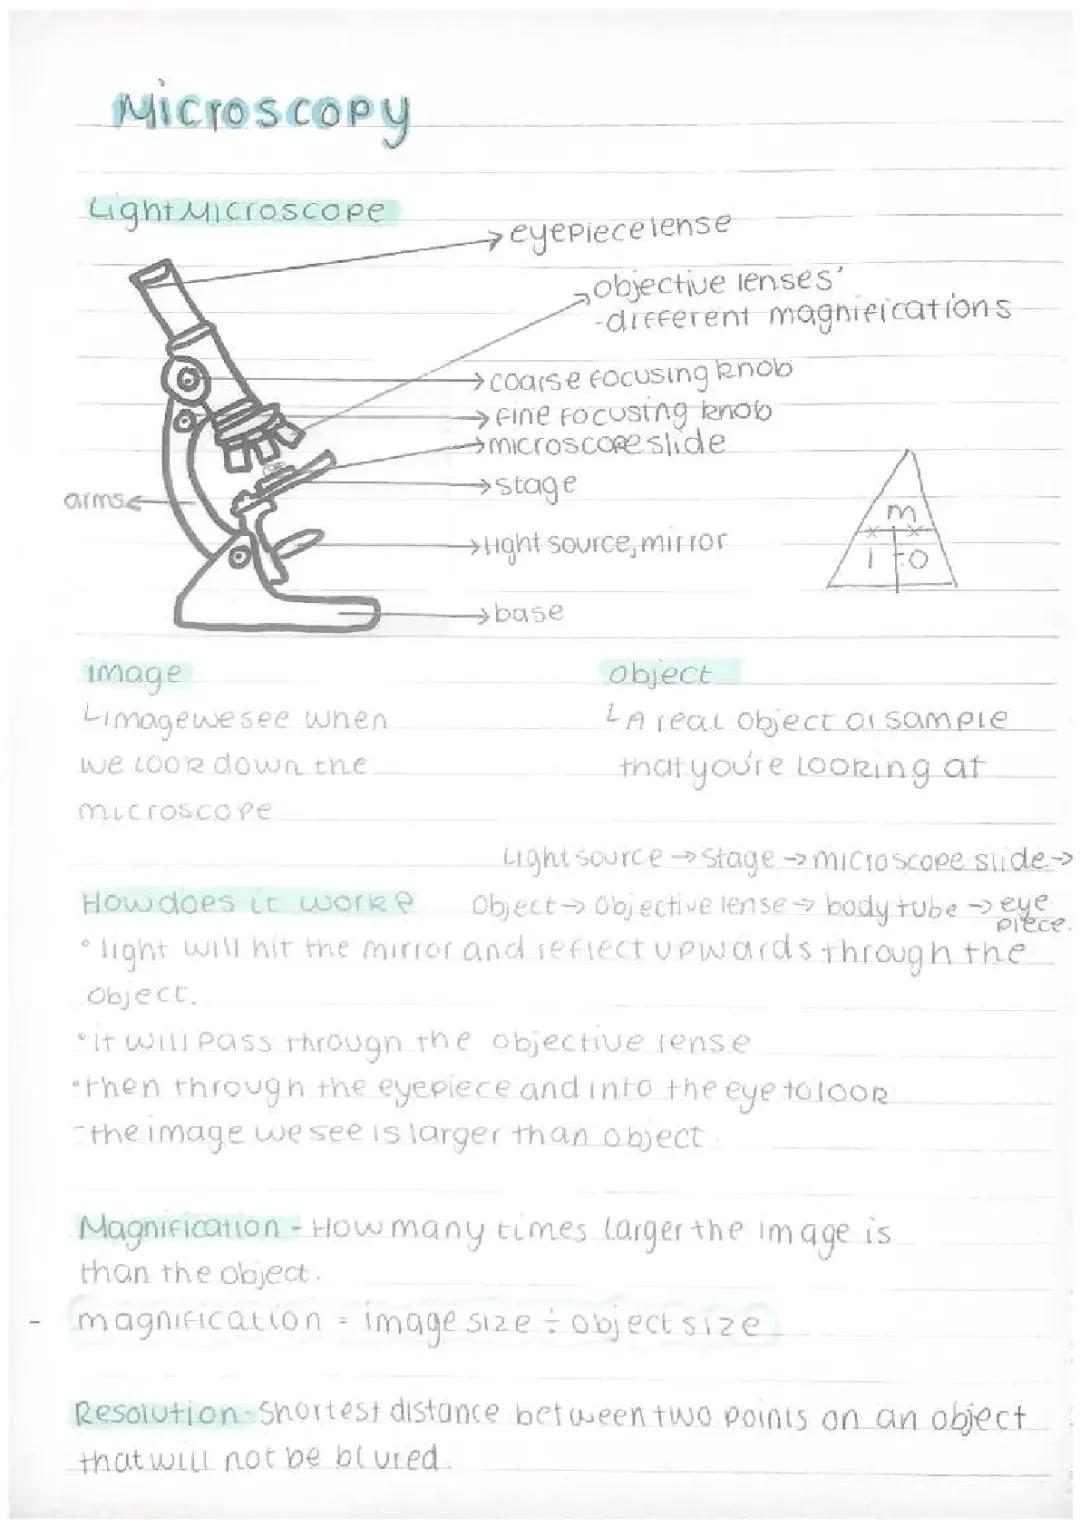 Microscopy
Light Microscope
eyepiece lense
objective lenses'
-different magnifications
coarse focusing knob
fine focusing knob
microscope slide
stage
arms
light source, mirror
base
m
I ÷ O
image
object
image we see when
A real object or sample
we look down the
that you're looking at
microscope
Light source → stage → microscope slide →
How does it work?
Object → Objective lense → body tube → eye
piece.
• light will hit the mirror and reflect upwards through the
object.
• it will pass through the objective lense
• then through the eyepiece and into the eye to look
- the image we see is larger than object.
Magnification - How many times larger the image is
than the object.
- magnification = image size ÷ object size
Resolution - Shortest distance between two points on an object
that will not be blured.